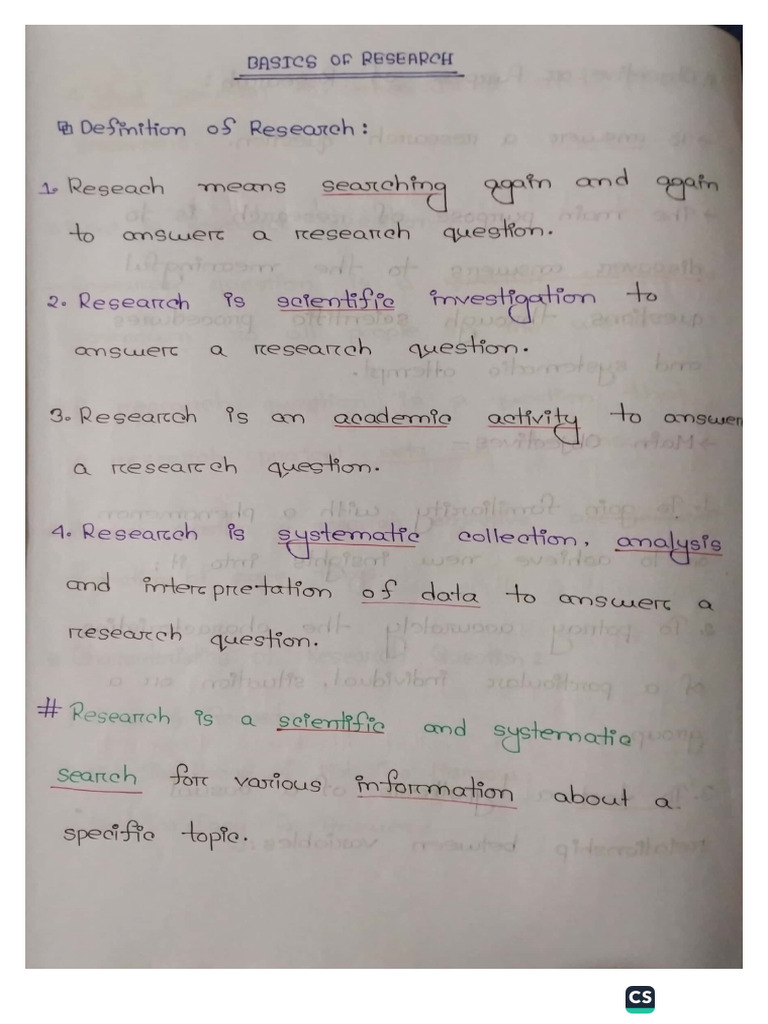 BASICS OF RESEARCH
Definition of Research:
1. Reseach means searching again and again
to answer a research question.
2. Research is scientific investigation to
answer a research question.
3. Research is an academic activity to answer
a research question.
4. Research is systematic collection, analysis
and interpretation of data to answer a
research question.
# Research is a scientific and systematic
search for various information about a
specific topic.
CS